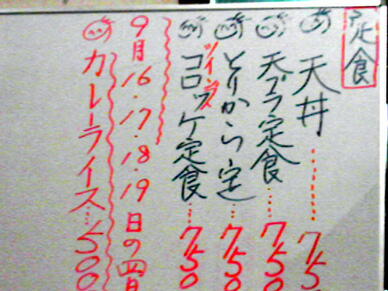 定食
天丼……75
天プラ定食…750
とりから定…750
ツインズ
コロッケ定食…750
9月16.17.18.19日の四日
カレーライス…500